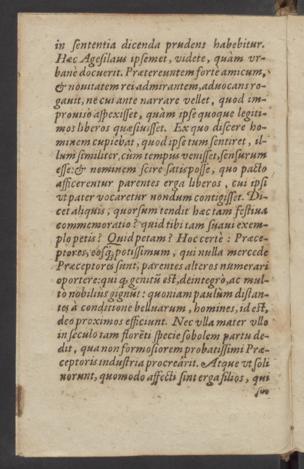 in sententia dicenda prudens habebitur.
Hæc Agesilaus ipsemet, videte, quàm vr-
banè docuerit. Prætereuntem fortè amicum,
& nouitatem rei admirantem, aduocans ro-
gauit, ne cui ante narrare vellet, quod im-
prouiso aspexisset, quàm ipse quoque legiti-
mos liberos quæsiuisset. Ex quo discere ho-
minem cupiebat, quod ipse tum sentiret, il-
lum similiter, cùm tempus venisset, sensurum
esse: & neminem scire satis posse, quo pacto
afficerentur parentes erga liberos, cui ipsi
vt pater vocaretur nondum contigisset. Di-
cet aliquis, quorsum tendit hæc tam festiua
commemoratio? quid tibi tam suaui exem-
plo petis? Quid petam? Hoc certè: Præce-
ptores, eosq́; potissimum, qui nulla mercede
Præceptores sint, parentes alteros numerari
oportere: qui q, genitū est, deintegrò, ac mul-
to nobilius gignūt: quoniam paulùm distan-
tes à conditione belluarum, homines, id est,
deo proximos efficiunt. Nec vlla mater vllo
in sæculo tam florēti specie sobolem partu de-
dit, qua non formosiorem probatissimi Præ-
ceptoris industria procreârit. Atque vt soli
norunt, quomodo affecti sint erga filios, qui